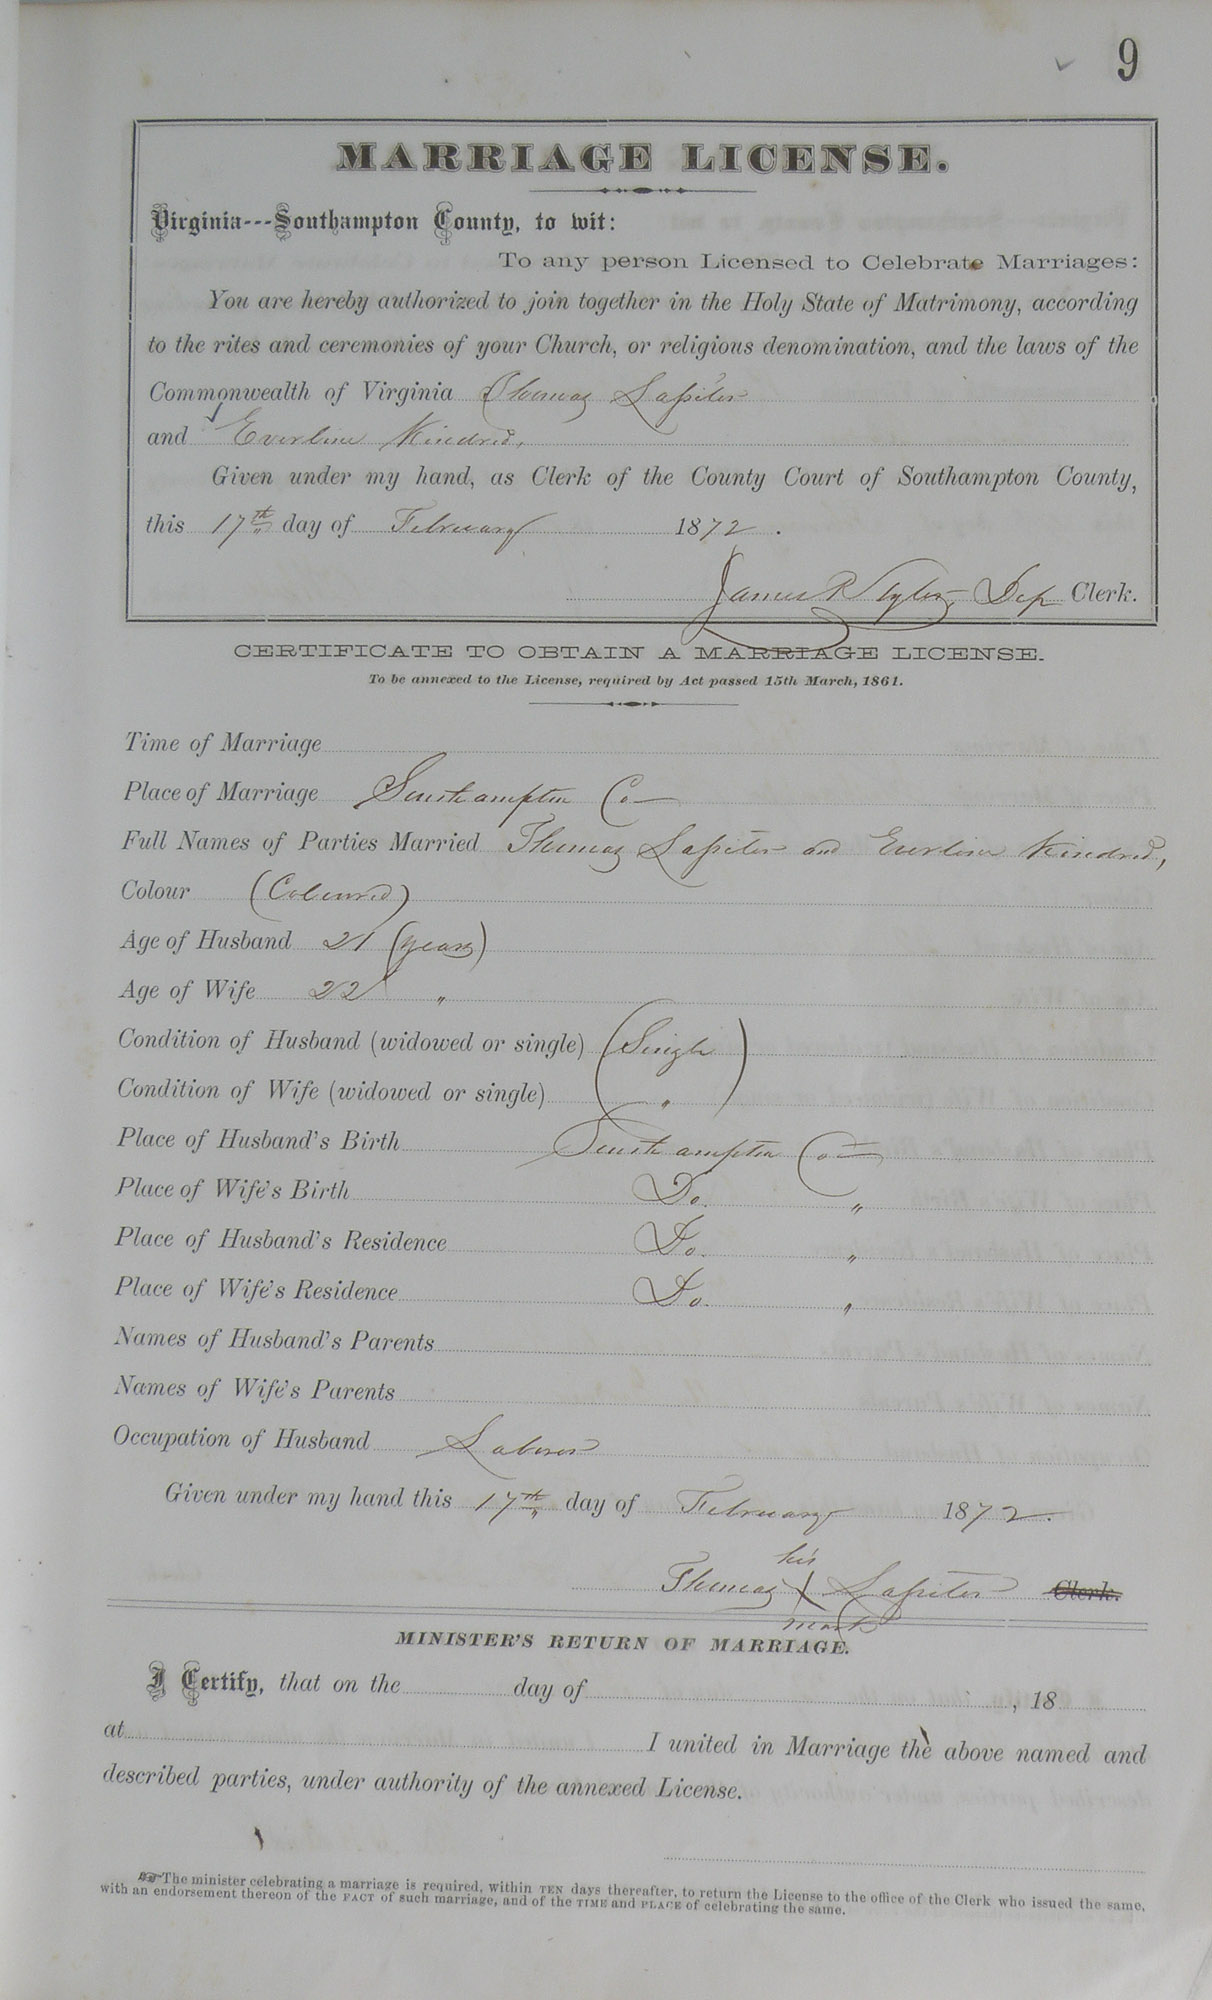 9
MARRIAGE LICENSE.
Virginia---Southampton County, to wit:
To any person Licensed to Celebrate Marriages:
You are hereby authorized to join together in the Holy State of Matrimony, according
to the rites and ceremonies of your Church, or religious denomination, and the laws of the
Commonwealth of Virginia Thomas Lapiter
and Everline Kindred,
Given under my hand, as Clerk of the County Court of Southampton County,
this 17th day of February 1872.
James R Dep Clerk.
CERTIFICATE TO OBTAIN A MARRIAGE LICENSE.
To be annexed to the License, required by Act passed 15th March, 1861.
Time of Marriage
Place of Marriage Southampton Co
Full Names of Parties Married Thomas Lapiter and Everline Kindred,
Colour (Coloured)
Age of Husband 21 (years)
Age of Wife 22 "
Condition of Husband (widowed or single) (Single)
Condition of Wife (widowed or single) "
Place of Husband's Birth Southampton Co
Place of Wife's Birth Do. "
Place of Husband's Residence Do. "
Place of Wife's Residence Do. "
Names of Husband's Parents
Names of Wife's Parents
Occupation of Husband Laborer
Given under my hand this 17th day of February 1872.
his
Thomas X Lapiter Clerk.
mark
MINISTER'S RETURN OF MARRIAGE.
I Certify, that on the day of , 18
at I united in Marriage the above named and
described parties, under authority of the annexed License.
The minister celebrating a marriage is required, within TEN days thereafter, to return the License to the office of the Clerk who issued the same,
with an endorsement thereon of the FACT of such marriage, and of the TIME and PLACE of celebrating the same.